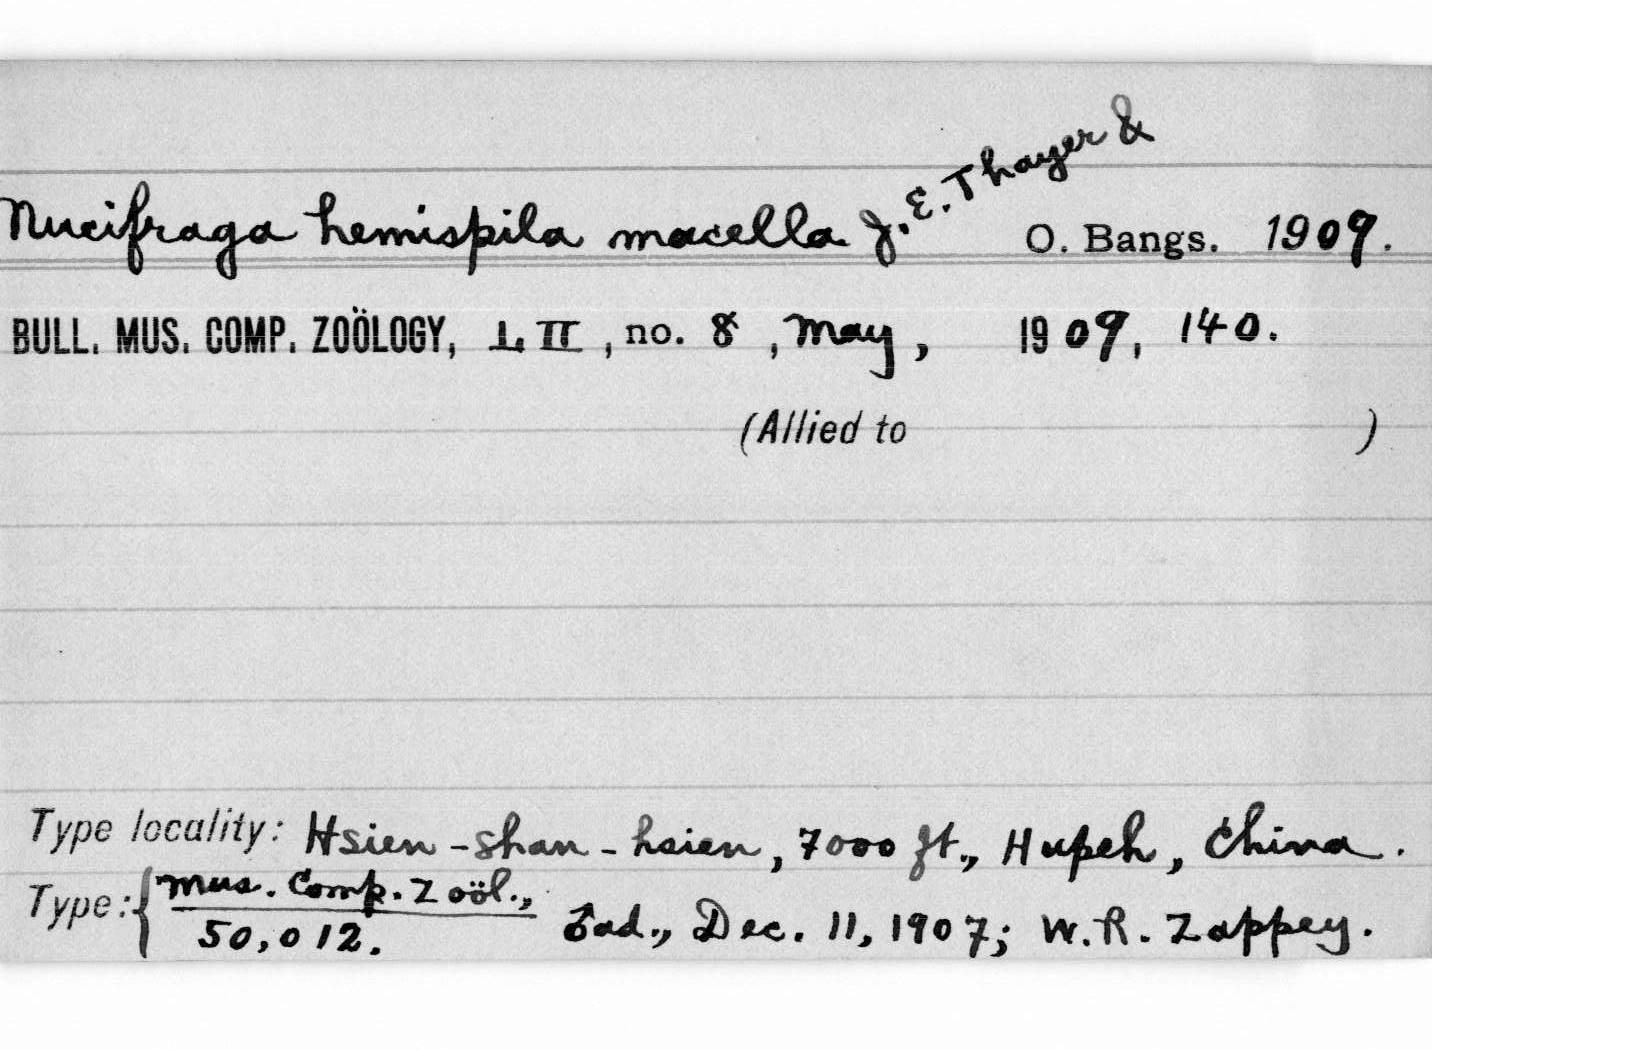 Nucifraga hemispila macella J. E. Thayer & O. Bangs. 1909.
BULL. MUS. COMP. ZOÖLOGY, LII, no. 8, May, 1909, 140.
(Allied to )
Type locality: Hsien-shan-hsien, 7000 ft., Hupeh, China.
Type: { Mus. Comp. Zoöl., ♂ad., Dec. 11, 1907; W. R. Zappey.
50,012.